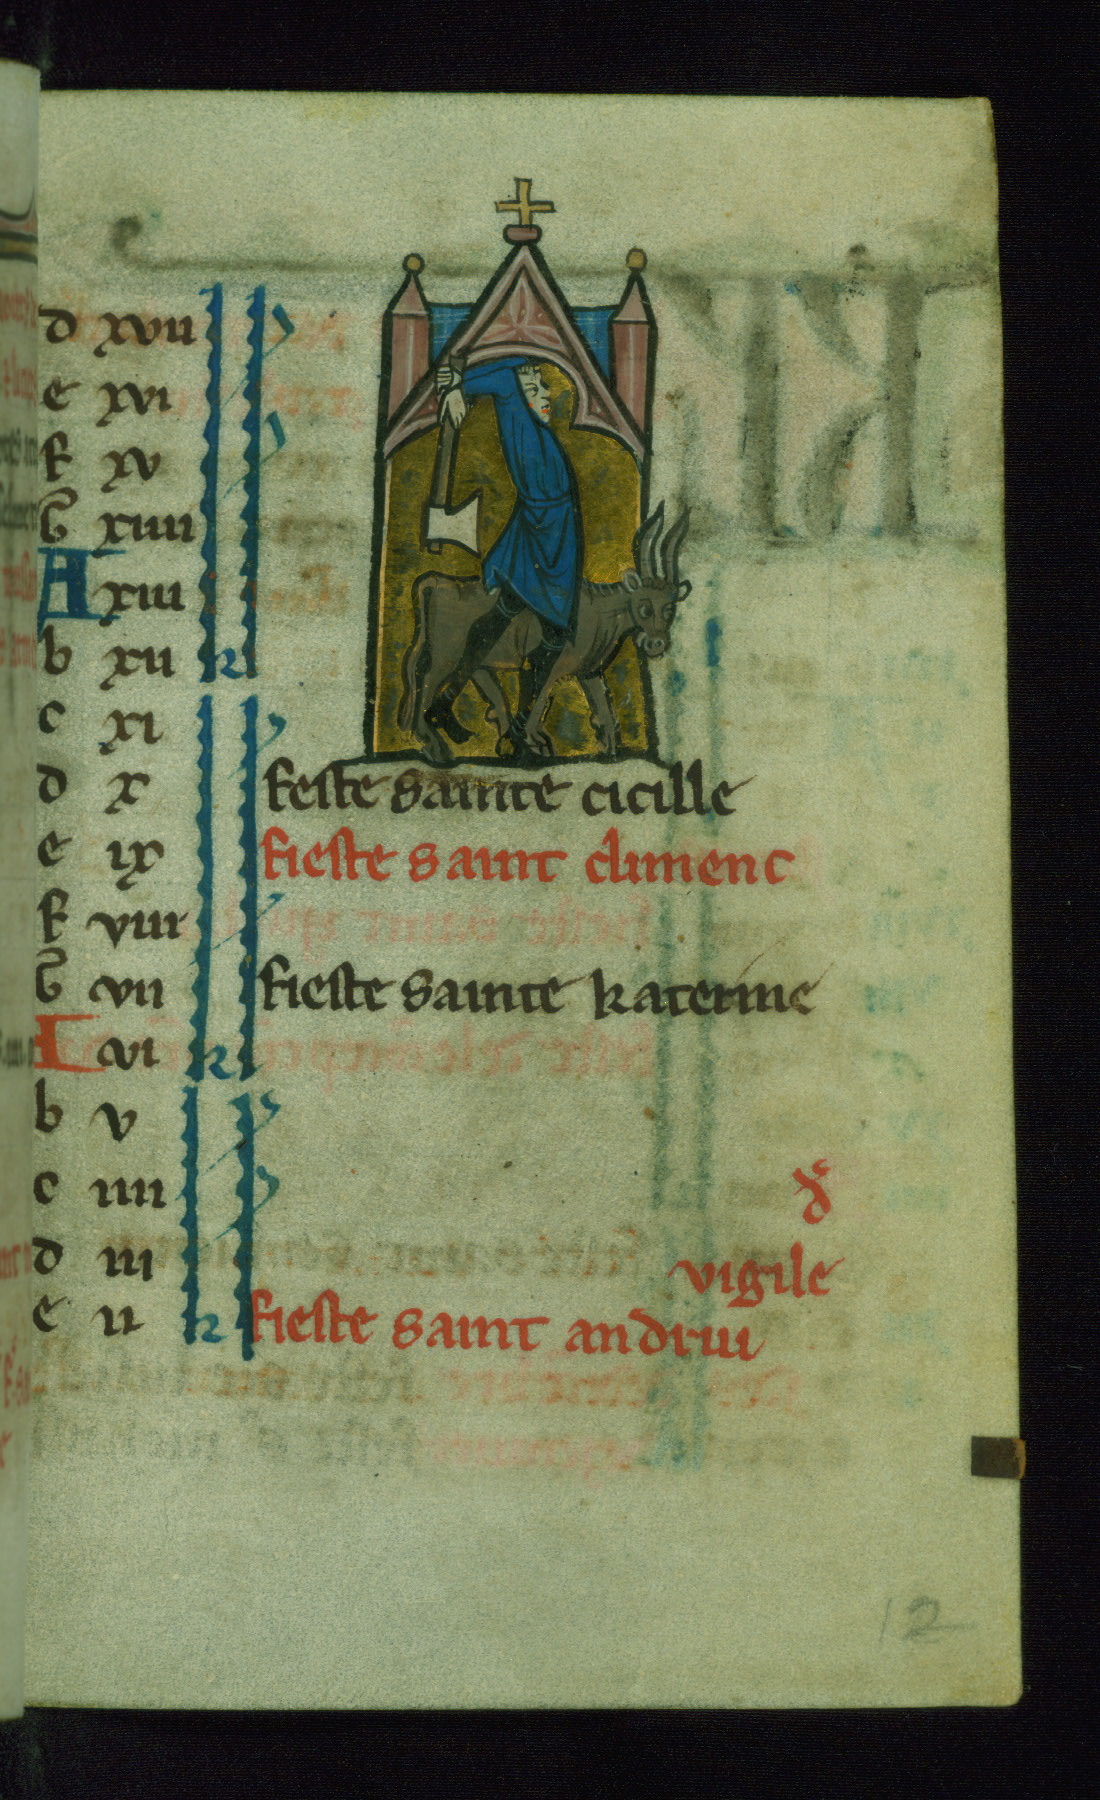 d xvii
e xvi
f xv
G xiiii
A xiii
b xii kł
c xi
d x feste sainte cicille
e ix fieste saint climent
f viii
G vii fieste sainte katerine
A vi kł
b v
c iiii
d iii vigile
e ii kł fieste saint andriu
12